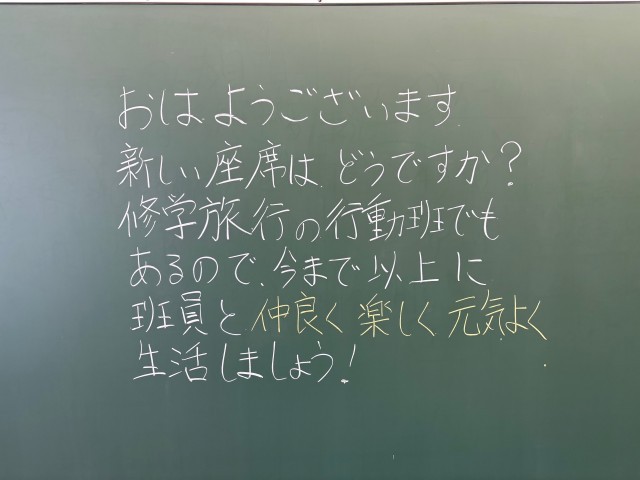 おはようございます
新しい座席は どうですか?
修学旅行の行動班でも
あるので、今まで以上に
班員と 仲良く 楽しく 元気よく
生活しましょう!